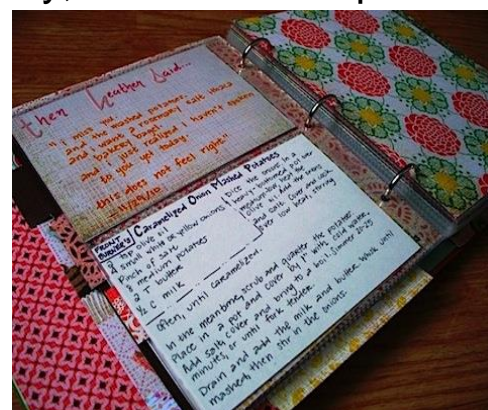 then Heather said...
"i miss you
and the mashed potatoes,
and i want 2 rosemary salt ithaca
bakery bagels
and i just realized i haven't spoken
to you yet today!
this does not feel right"
FRONT BURNER'S Caramelized Onion Mashed Potatoes
2 tbsp olive oil
2 small white or yellow onions
Pinch of salt
8 medium potatoes
2 T butter
½ C milk
Dice the onions in a
heavy-bottomed pot over
medium-low, heat the
olive oil. Add the onions
and salt. Cover and cook
over low heat, stirring
often, until caramelized.
In the meantime, scrub and quarter the potatoes.
Place in a pot and cover by 1" with cold water.
Add salt, cover and bring to a boil. Simmer 20-25
minutes, or until fork tender.
Drain and add the milk and butter. Whisk until
mashed, then stir in the onions.